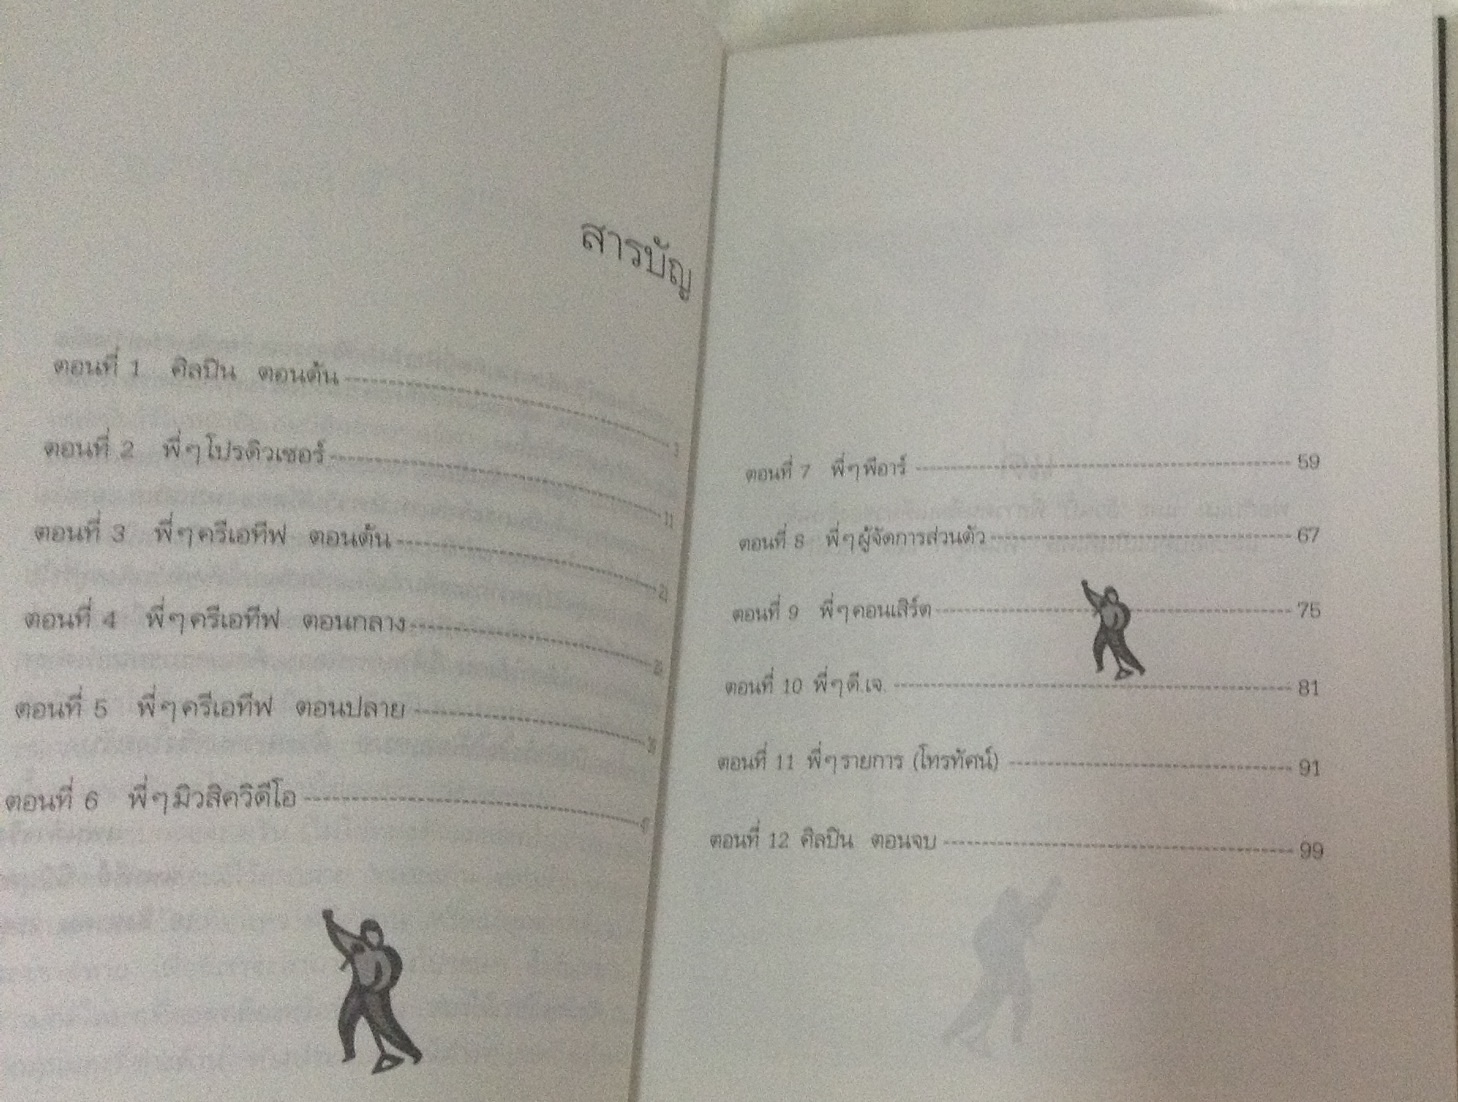 สารบัญ
ตอนที่ 1 ศิลปิน ตอนต้น
ตอนที่ 2 พี่ๆโปรดิวเซอร์ 11
ตอนที่ 3 พี่ๆครีเอทีฟ ตอนต้น
ตอนที่ 4 พี่ๆครีเอทีฟ ตอนกลาง
ตอนที่ 5 พี่ๆครีเอทีฟ ตอนปลาย
ตอนที่ 6 พี่ๆมิวสิควิดีโอ
ตอนที่ 7 พี่ๆพีอาร์ 59
ตอนที่ 8 พี่ๆผู้จัดการส่วนตัว 67
ตอนที่ 9 พี่ๆคอนเสิร์ต 75
ตอนที่ 10 พี่ๆดี.เจ. 81
ตอนที่ 11 พี่ๆรายการ (โทรทัศน์) 91
ตอนที่ 12 ศิลปิน ตอนจบ 99